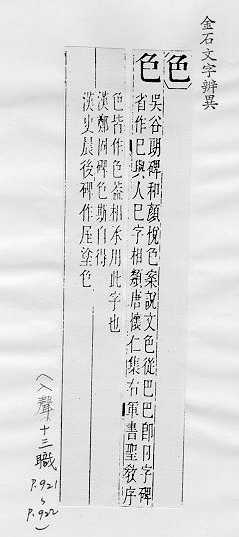 金石文字辨異
色
色 吳谷朗碑和顏悅色案說文色從巴巴即卪字碑
省作巴與人巳字相類唐懷仁集右軍書聖教序
色皆作色益相承用此字也
漢鄭固碑色斯自得
漢史晨後碑作屋塗色
〈入聲十三職
P.921
~
P.922〉